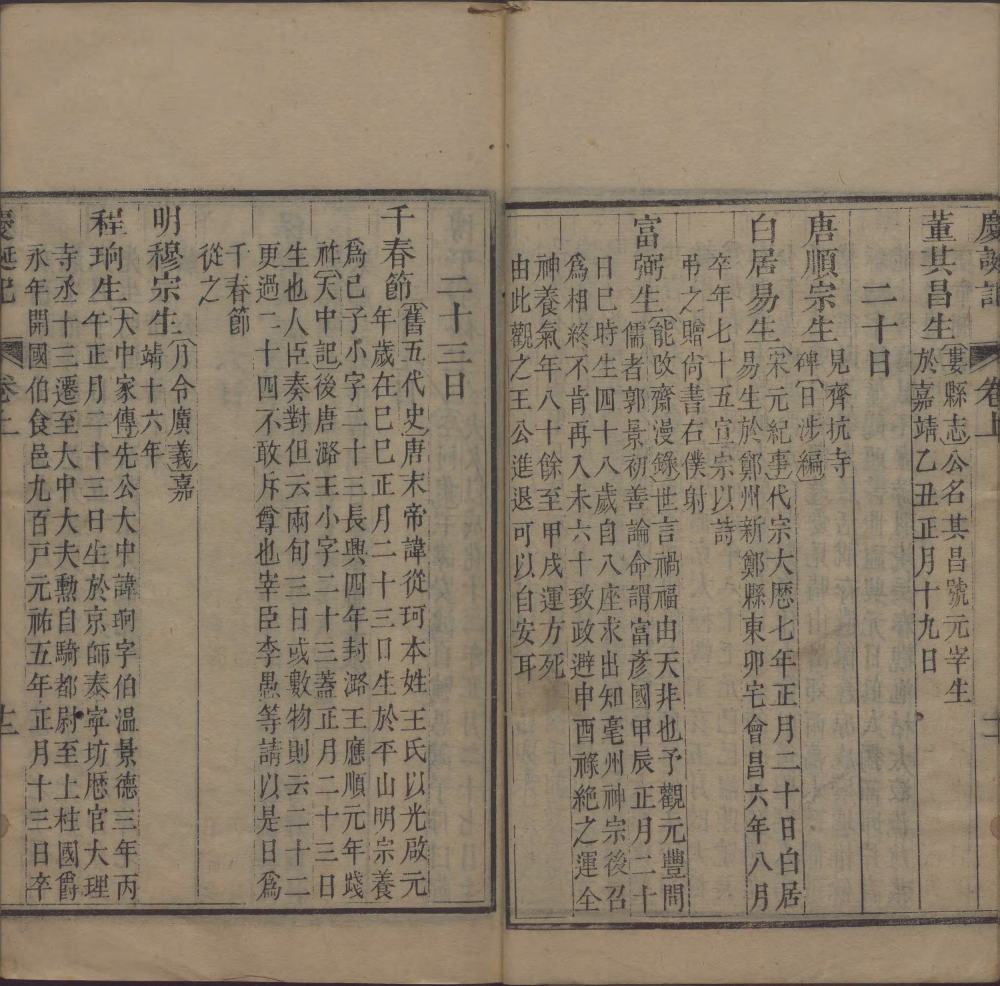 慶誕記 卷上
董其昌生婁縣志公名其昌號元宰生
於嘉靖乙丑正月十九日
二十日
唐順宗生見齊抗寺
碑日涉編
白居易生宋元紀事代宗大厯七年正月二十日白居
易生於鄭州新鄭縣東卯宅會昌六年八月
卒年七十五宣宗以詩
弔之贈尙書右僕射
富弼生能改齋漫錄世言禍福由天非也予觀元豐間
儒者郭景初善論命謂富彥國甲辰正月二十
日巳時生四十八歲自八座求出知亳州神宗後召
爲相終不肯再入未六十致政避申酉祿絶之運全
神養氣年八十餘至甲戌運方死
由此觀之王公進退可以自安耳
二十三日
千春節舊五代史唐末帝諱從珂本姓王氏以光啟元
年歲在巳巳正月二十三日生於平山明宗養
爲己子小字二十三長興四年封潞王應順元年踐
祚天中記後唐潞王小字二十三蓋正月二十三日
生也人臣奏對但云兩旬三日或數物則云二十二
更過二十四不敢斥尊也宰臣李愚等請以是日爲
千春節
從之
明穆宗生月令廣義嘉
靖十六年
程珦生大中家傳先公大中諱珦字伯温景德三年丙
午正月二十三日生於京師泰寧坊厯官大理
寺丞十三遷至大中大夫勳自騎都尉至上柱國爵
永年開國伯食邑九百戸元祐五年正月十三日卒
慶誕記 卷上 十二